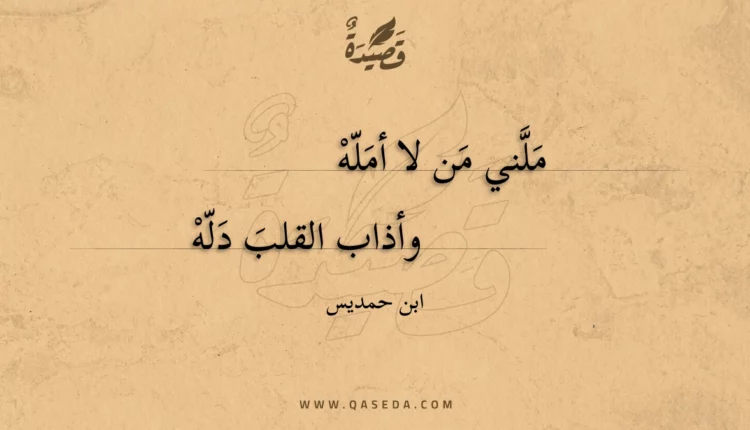 قَصِيْدَةٌ
مَلَّني مَن لا أمَلّهْ
وأذاب القلبَ دَلّهْ
ابن حمديس
WWW.QASEDA.COM